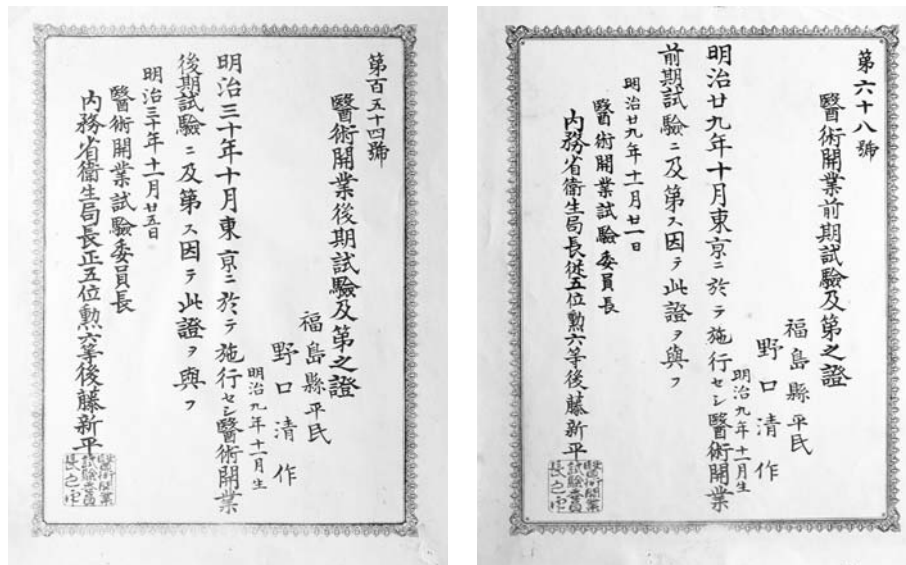 第六十八號
醫術開業前期試驗及第之證
福島縣平民
野口清作
明治九年十一月生
明治廿九年十月東京ニ於テ施行セシ醫術開業
前期試驗ニ及第ス因テ此證ヲ與フ
明治廿九年十一月廿一日
醫術開業試驗委員長
内務省衞生局長従五位勲六等後藤新平
醫術開業
試驗委員
長之印
第百五十四號
醫術開業後期試驗及第之證
福島縣平民
野口清作
明治九年十一月生
明治三十年十月東京ニ於テ施行セシ醫術開業
後期試驗ニ及第ス因テ此證ヲ與フ
明治三十年十一月廿五日
醫術開業試驗委員長
内務省衞生局長正五位勲六等後藤新平
醫術開業
試驗委員
長之印